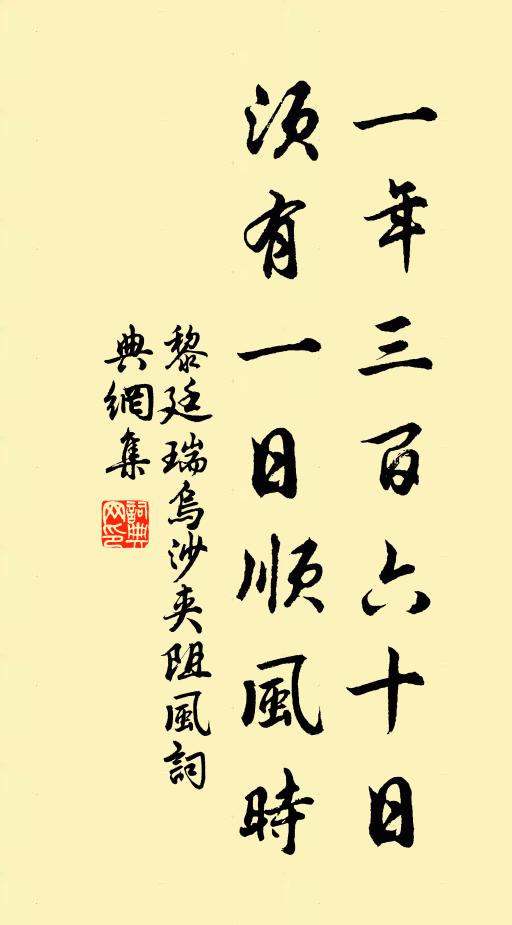 一年三百六十日
須有一日順風時
黎廷瑞烏沙夾阻風詞
典網集
詞典網印